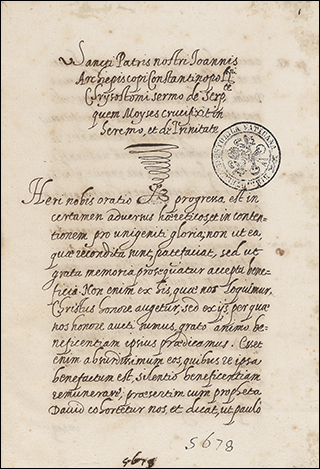 Sancti Patris nostri Ioannis
Archepiscopi Constantinopo
Chrysostomi sermo de Serp
quem Moyses crucifixit in
heremo, et de Trinitate
Heri nobis oratio progressa est in
certamen adversus hæreticos, et in conten-
tionem pro unigeniti gloria; non ut ea,
quæ recondita sunt, patefaciat, sed ut
grata memoria prosequatur accepta bene-
ficia. Non enim ex iis, quæ nos loquimur,
Christus honore augetur, sed ex ijs per quæ
nos honore aucti sumus, grato animo be-
neficentiam ipsius prædicamus. Esset
enim absurdissimum eos, quibus re ipsa
benefactum est, silentio beneficentiam
remunerare; præsertim cum propheta
David cohortetur nos, et dicat, ut paulo
5678
5678